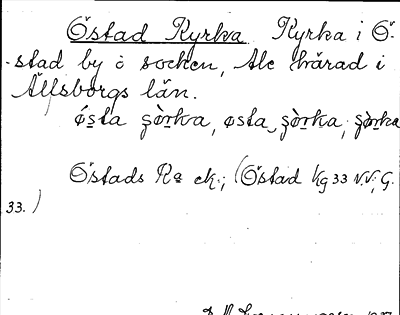 Östad Kyrka Kyrka i Ö-
stad by o socken, Ale härad i
Älfsborgs län.
ǿsta şòrka, østa şòrka, şòrka
Östads Ka ek., (Östad Kg 33 N.V., G.
33.)